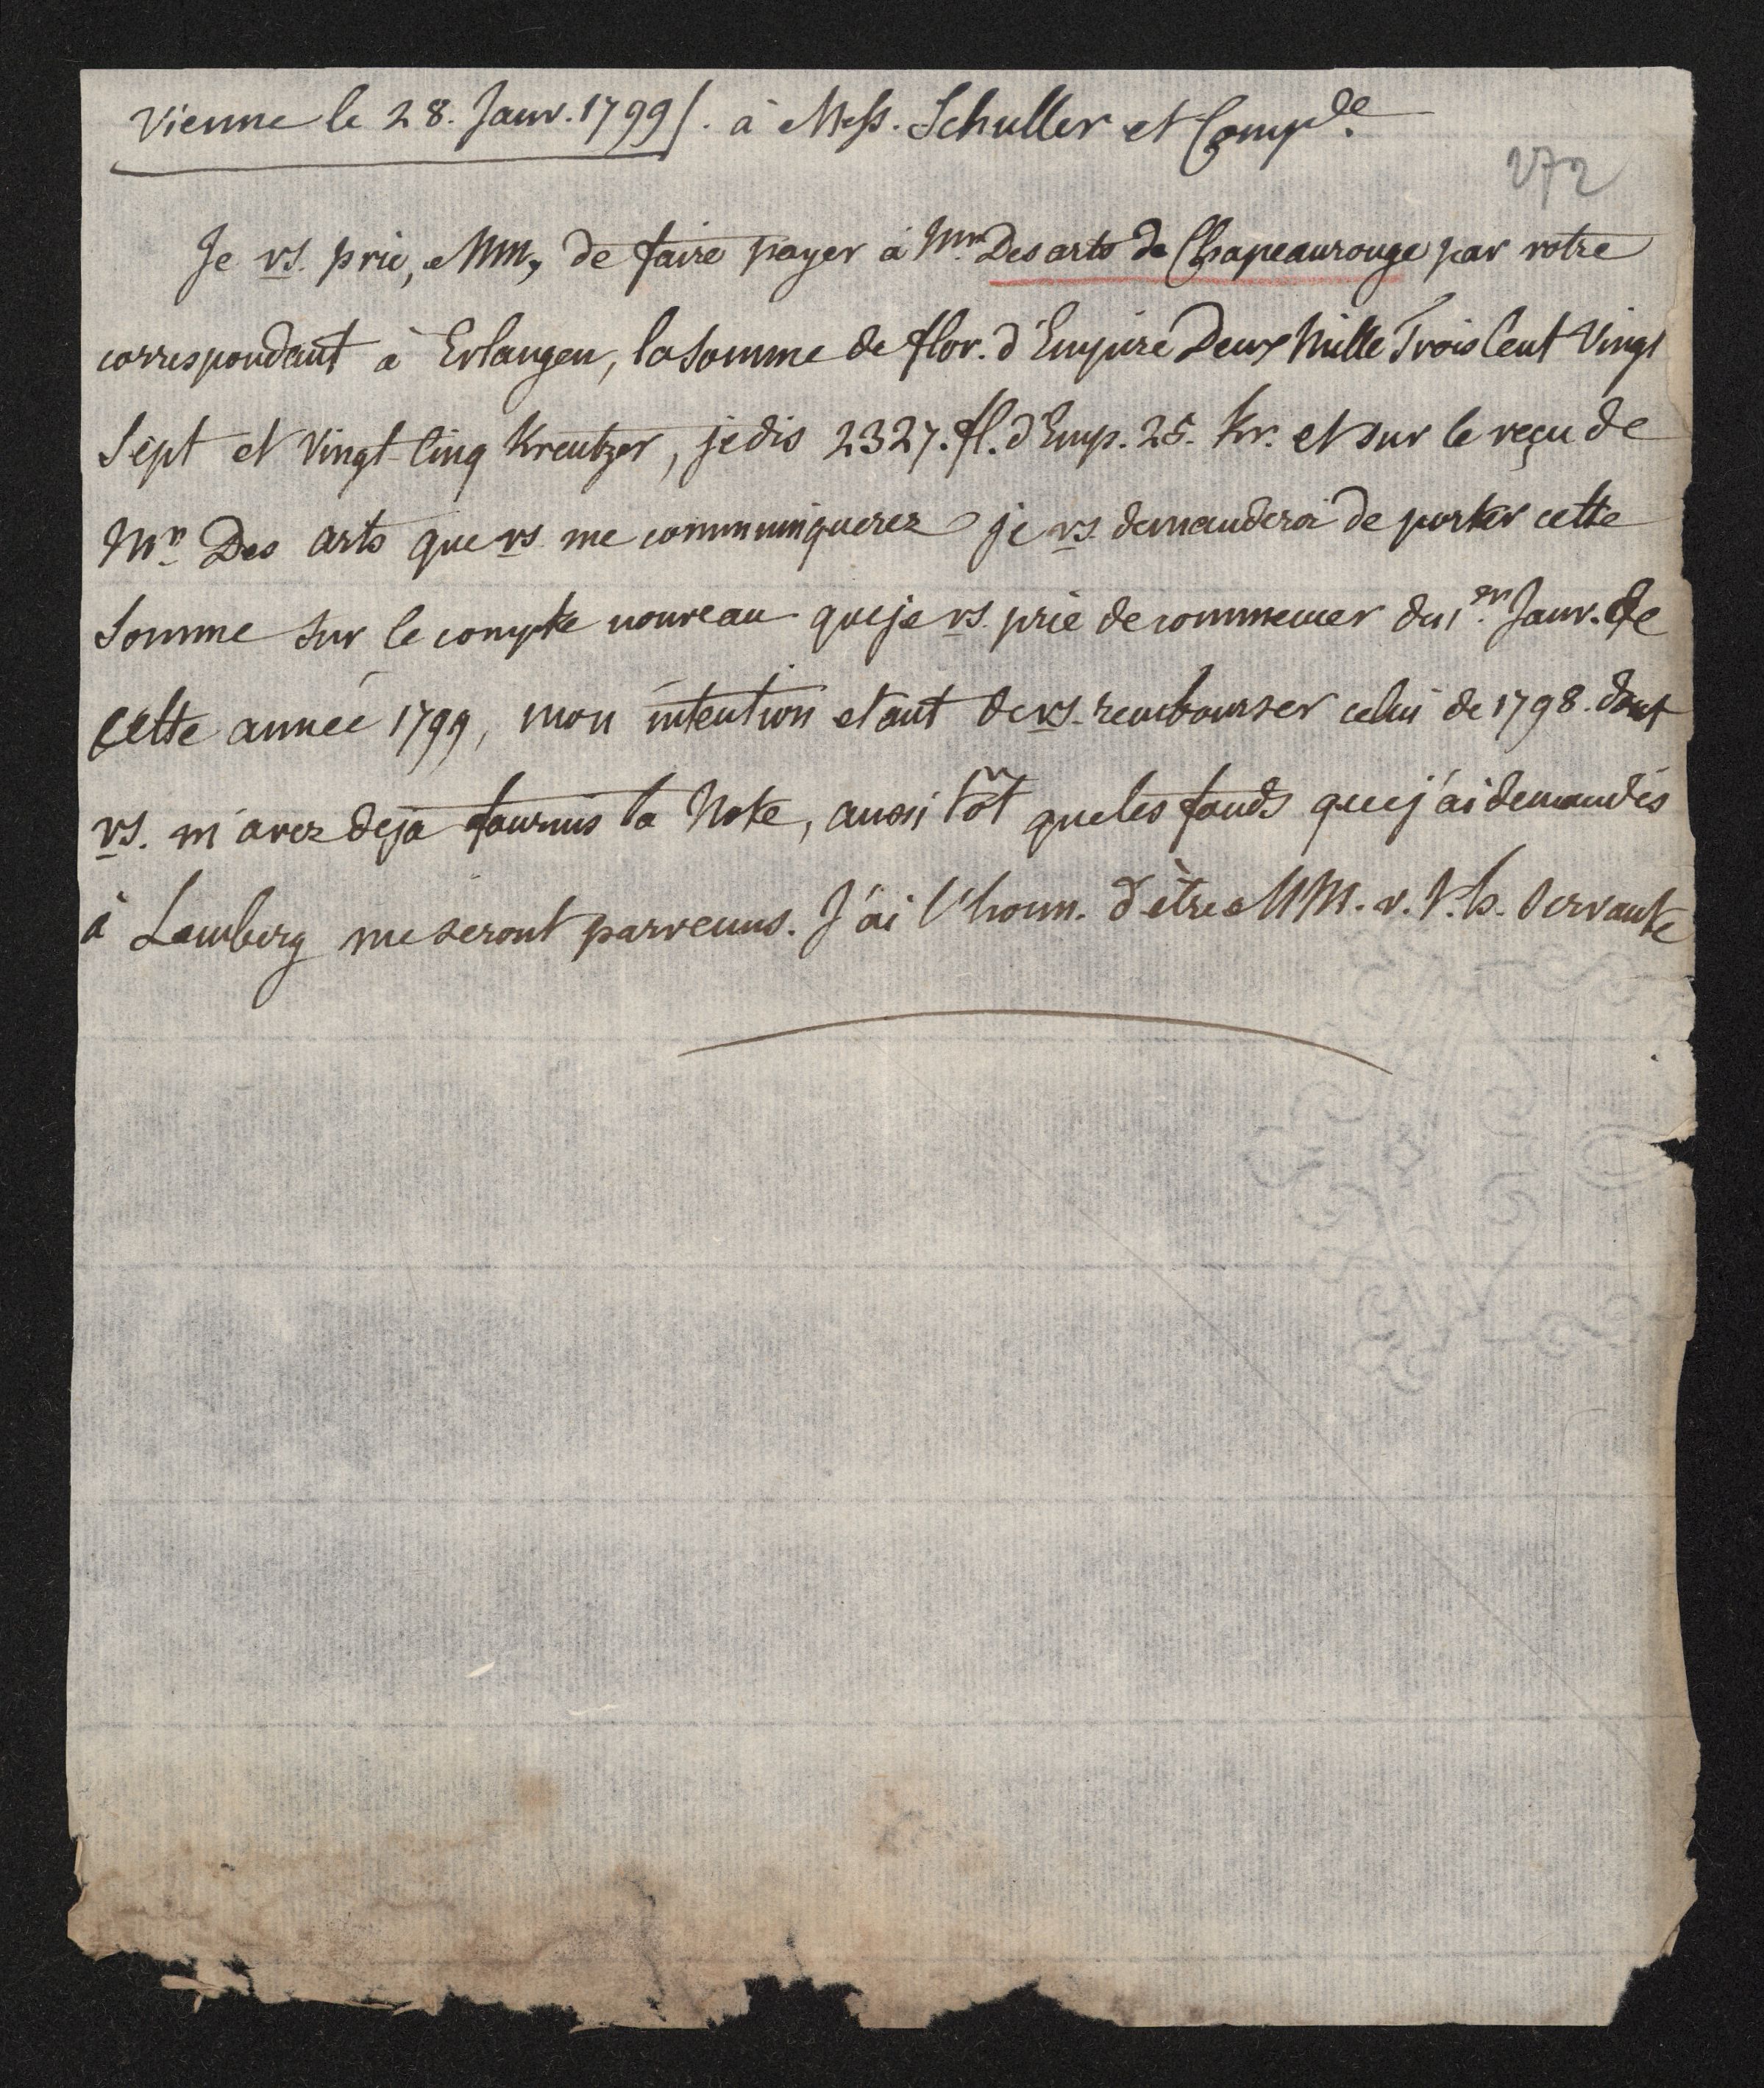 Vienne le 28. Janv. 1799/. à Mess. Schuller et Comp.de
272
Je vs. prie, MM, de faire payer à Mr. Des arts de Chapeaurouge par votre
correspondant à Erlangen, la somme de flor. d'Empire Deux Mille Trois Cent Vingt
Sept et Vingt-Cinq Kreutzer, je dis 2327. fl. d'Emp. 25. kr. et sur le reçu de
Mr. Des arts que vs. me communiquerez je vs. demanderai de porter cette
Somme sur le compte nouveau que je vs. prie de commencer du 1.er Janv. de
cette année 1799, mon intention etant de vs. rembourser celui de 1798. dont
vs. m'avez deja fournis la Note, aussi tôt que les fonds que j'ai demandés
à Lemberg me seront parvenus. J'ai l'honn. d'être MM. v. t. h. Servante